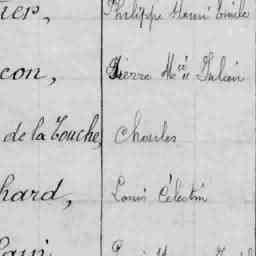 ier, Philippe Henri Emile
con, Pierre Mce Julien
de la Touche, Charles
hard, Louis Célestin